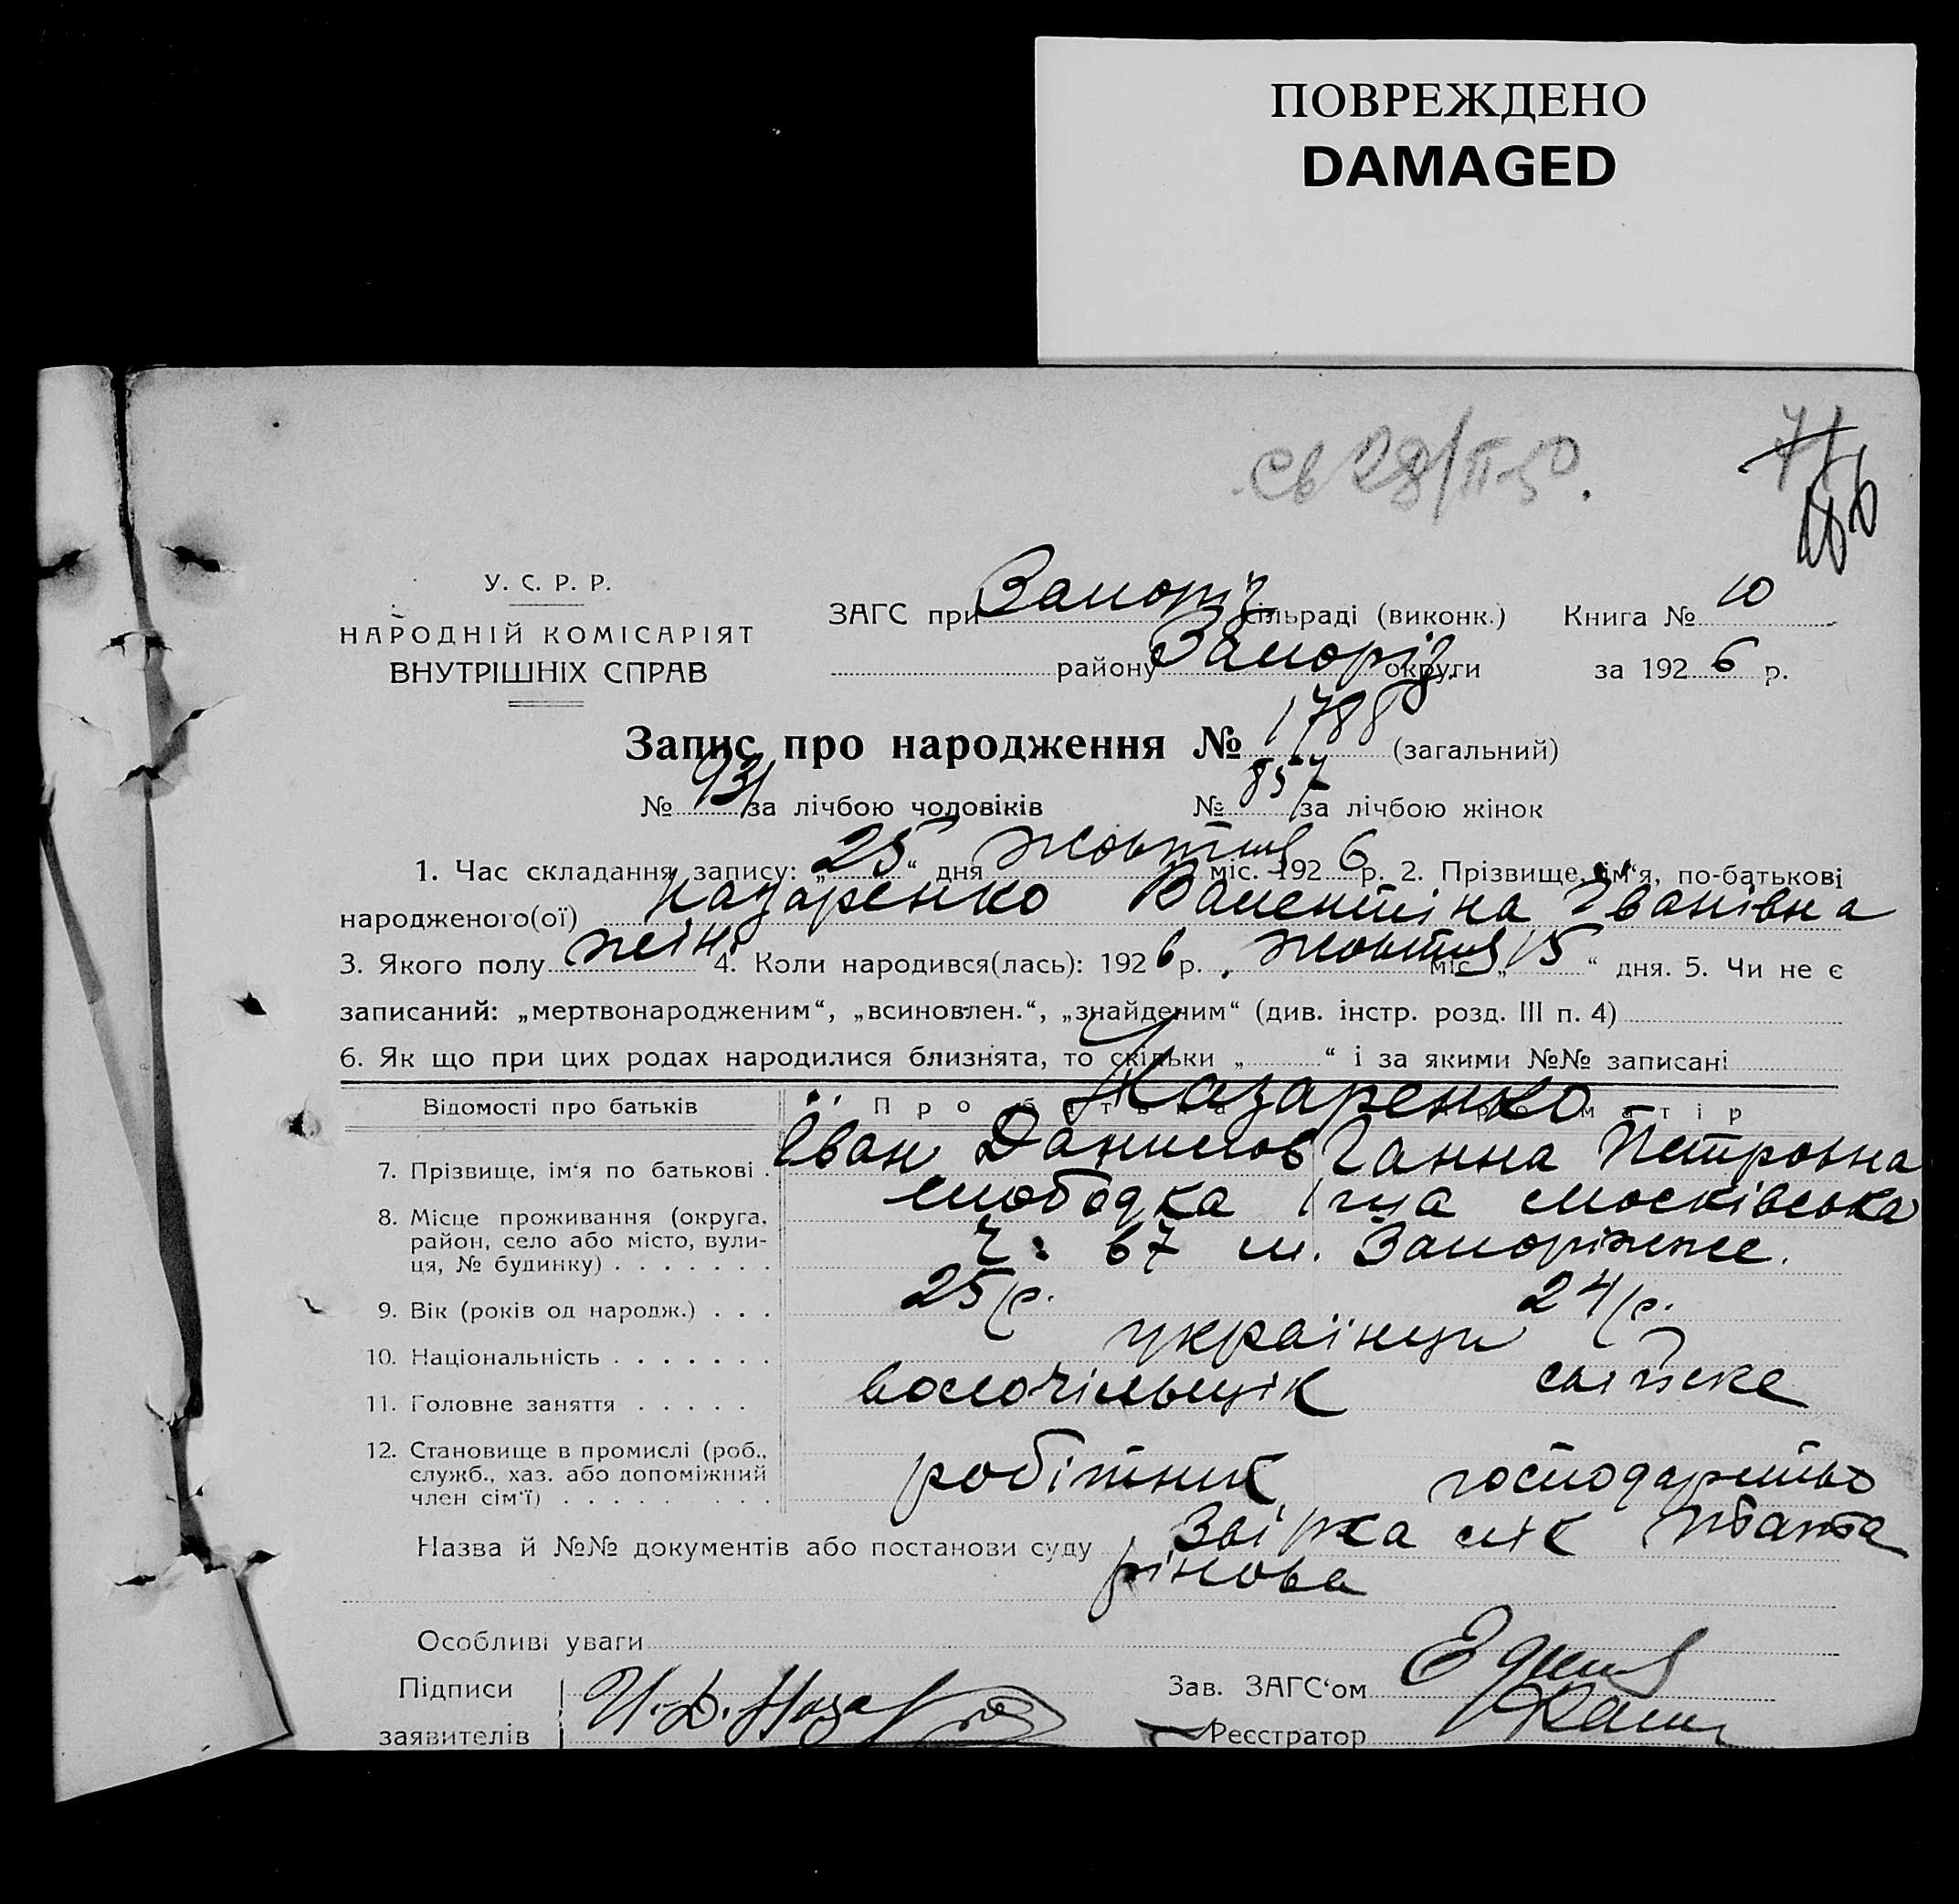 ПОВРЕЖДЕНО
DAMAGED
св 28/II-50.
У. С. Р. Р.
НАРОДНІЙ КОМІСАРІЯТ
ВНУТРІШНІХ СПРАВ
ЗАГС при Запоріз сільраді (виконк.) Книга № 10
району Запоріз. округи за 1926 р.
Запис про народження № 1788 (загальний)
№ 931 за лічбою чоловіків № 857 за лічбою жінок
1. Час складання запису: „25“ дня жовтня міс. 1926 р. 2. Прізвище, ім‘я, по-батькові
народженого(ої) Назаренко Валентіна Іванівна
3. Якого полу жін. 4. Коли народився(лась): 1926 р. жовтня міс. „15“ дня. 5. Чи не є
записаний: „мертвонародженим“, „всиновлен.“, „знайденим“ (див. інстр. розд. III п. 4)
6. Як що при цих родах народилися близнята, то скільки „ “ і за якими №№ записані
Відомості про батьків Про батька Про матір
Назаренко
7. Прізвище, ім‘я по батькові . Іван Данилов Ганна Петровна
8. Місце проживання (округа, слободка московська
район, село або місто, вули- 67 м. Запоріжже.
ця, № будинку) . . . . . . .
9. Вік (років од народж.) . . . 25 р. 24 р.
10. Національність . . . . . . . українці
11. Головне заняття . . . . . волочільщік
12. Становище в промислі (роб., робітник господарство
служб., хаз. або допоміжний
член сім‘ї) . . . . . . . . .
Назва й №№ документів або постанови суду
Особливі уваги
Підписи Зав. ЗАГС‘ом
заявителів Реєстратор